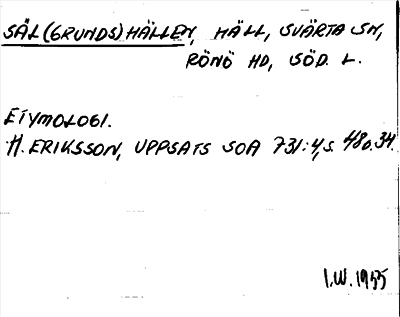 SÄL(GRUNDS)HÄLLEN, HÄLL, SVÄRTA SN,
RÖNÖ HD, SÖD. L.
ETYMOLOGI.
H. ERIKSSON, UPPSATS SOA 731:4, s. 48 o. 34.
I.W. 1955